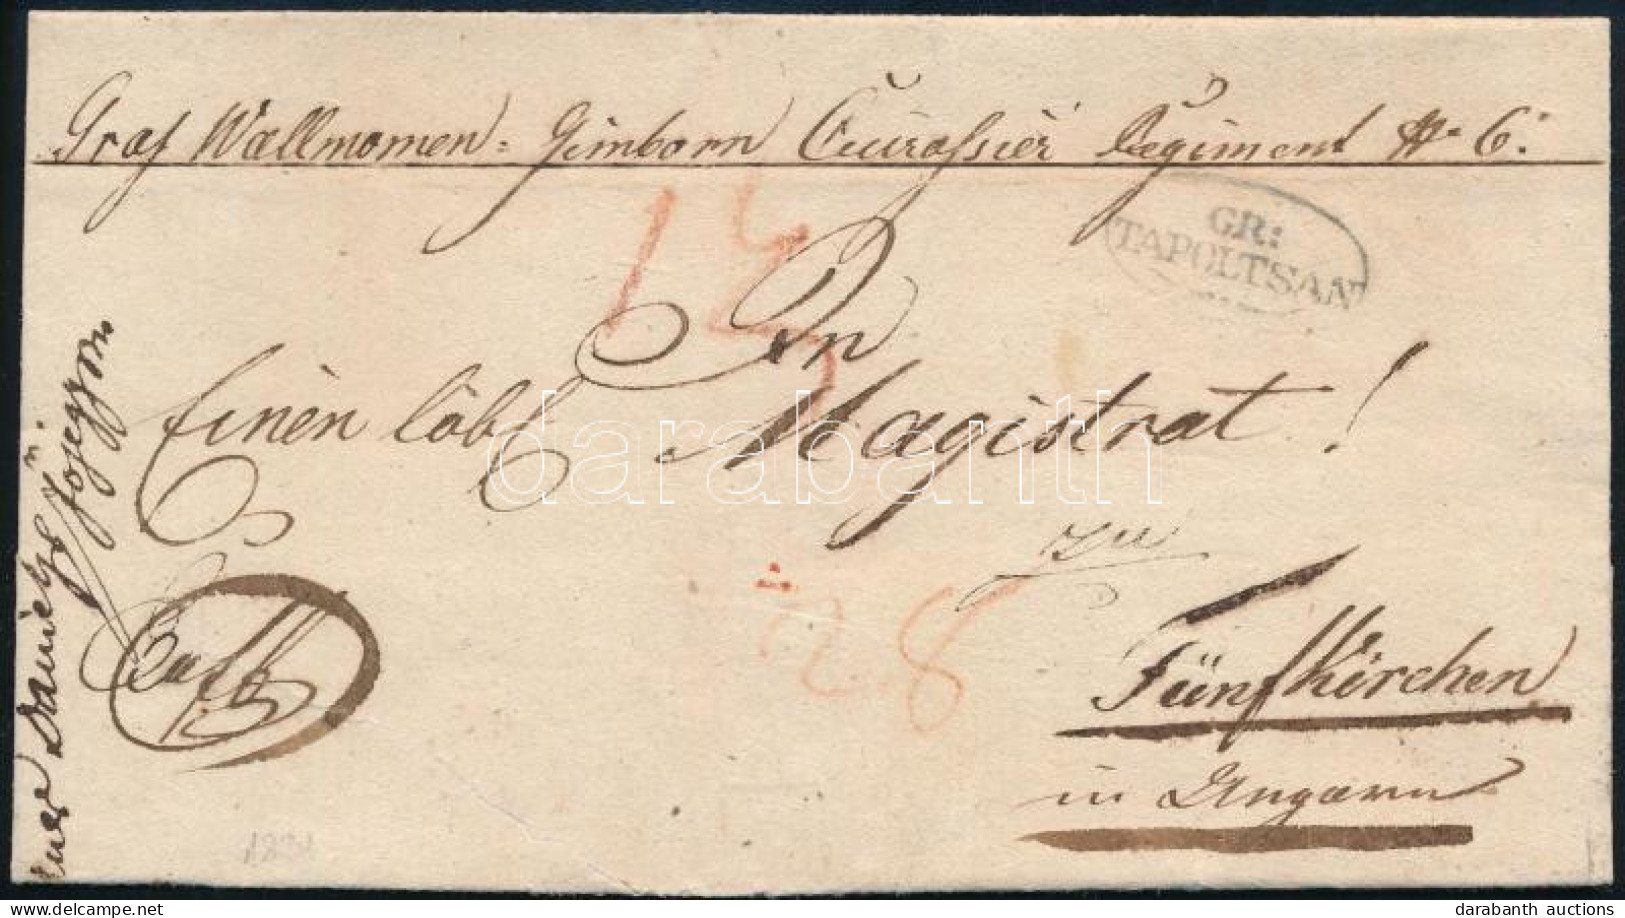 Graf Wallmomen = Gimborn Cuirassier Regiment No 6:
GR:
TAPOLTSAN
13
An
Einen löbl
Magistrat !
darabanth
zu
28
Fünfkirchen
in Ungarn
1831
www.darabanth.com
darabanth auctions